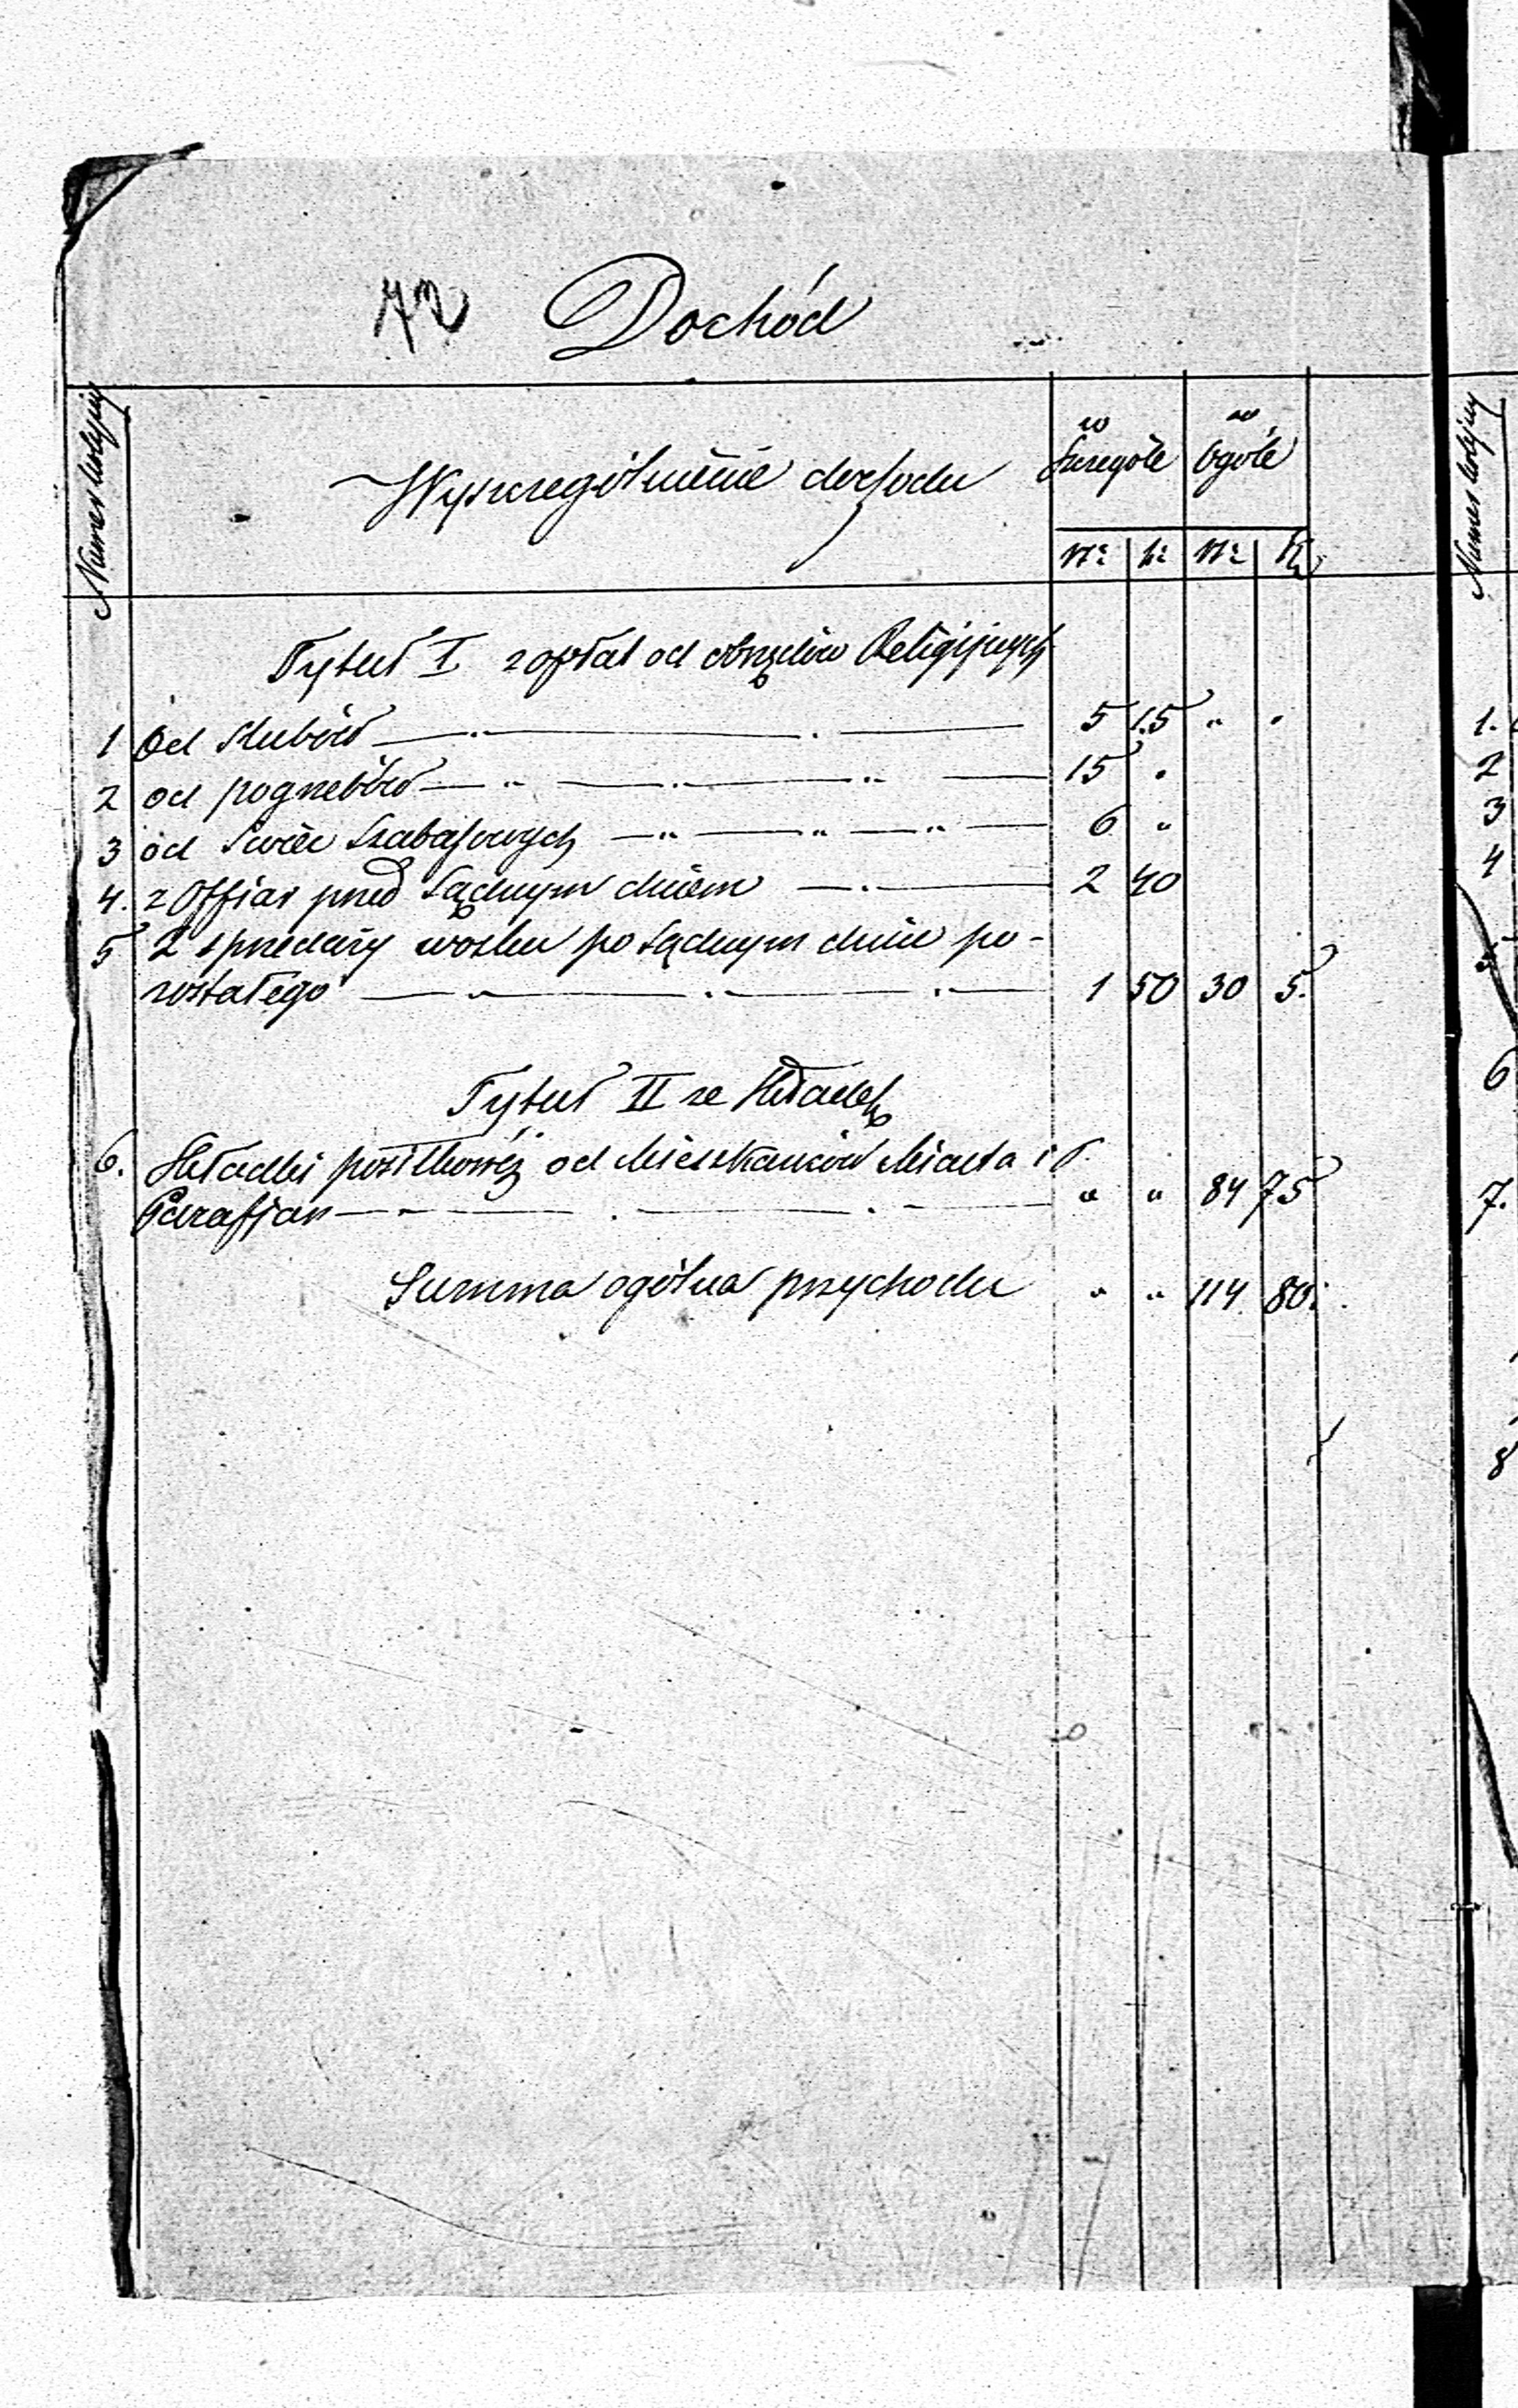 72 Dochód
Numer kolejny
Wyszczególnienie dochodu
w Szczególe
w Ogóle
rs: k: rs: K:
Tytuł I z opłat od obrzędów Religijnych
1 Od slubów — 5 15 " "
2 od pogrzebów — 15 "
3 od Swiec Szabasowych — 6 "
4. z Offiar przed Sądnym dniem — 2 40
5 Z sprzedaży wosku po Sądnym dniu po-
zostałego — 1 50 30 5.
Tytuł II ze Składek
6. Składki posiłkowéj od Mieszkańców Miasta i
Parafjan — " " 84 75
Summa ogólna przychodu " " 114 80.
Numer kolejny
1.
2
3
4
5
6
7.
8